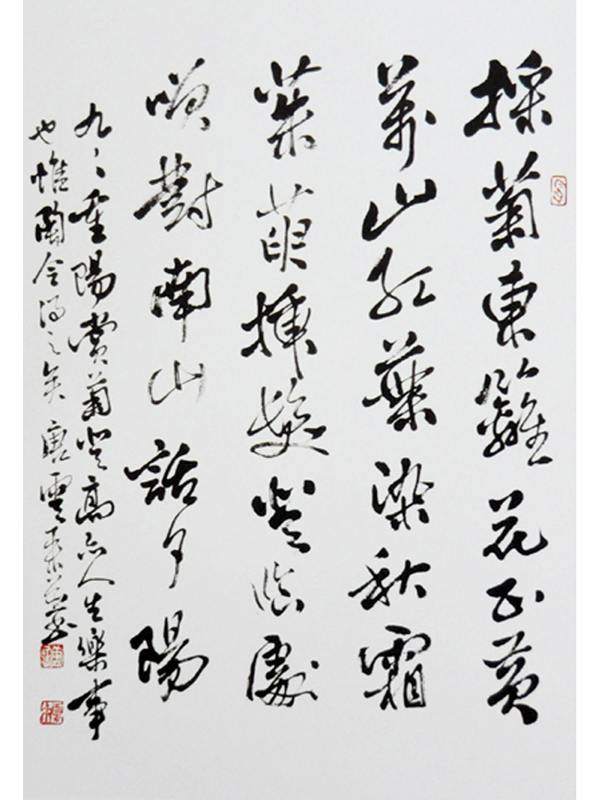 採菊東籬花正黃
萬山紅葉染秋霜
茱萸插髮登臨處
咲對南山話夕陽
九〻重陽賞菊登高亦人生樂事
也惟陶令得之矣 唐雲來